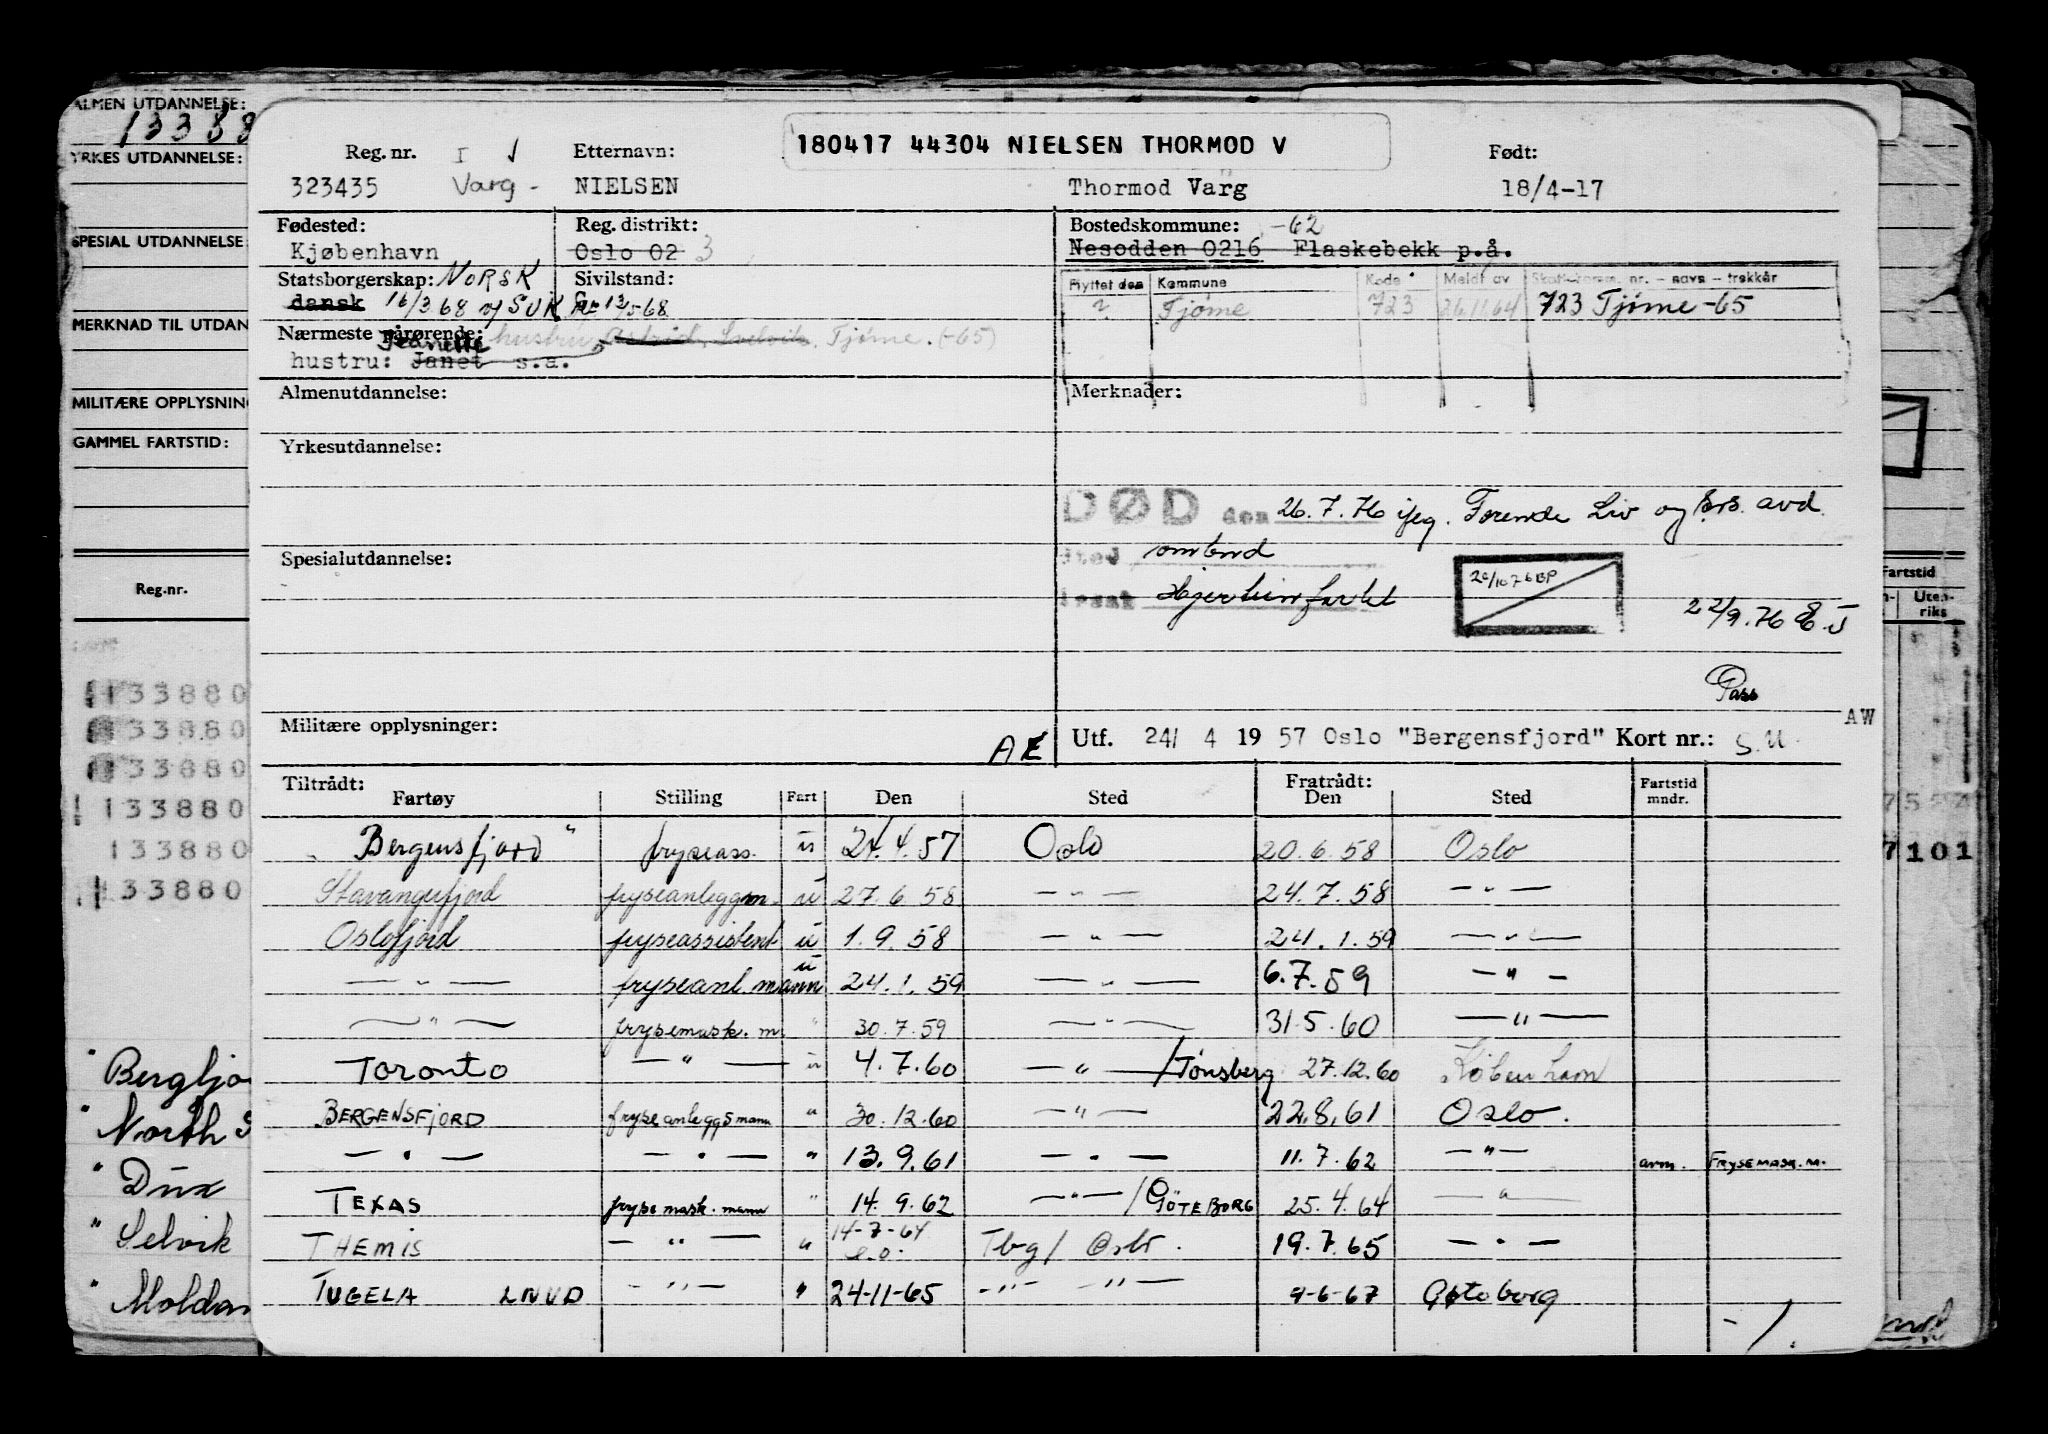 ALMEN UTDANNELSE:
13388
YRKES UTDANNELSE:
SPESIAL UTDANNELSE
MERKNAD TIL UTDAN
MILITÆRE OPPLYSNIN
GAMMEL FARTSTID:
Reg.nr.
133880
33880
33880
133880
133880
133880
" Bergljo
" North S
" Dux
" Selvik
" Moldan
180417 44304 NIELSEN THORMOD V
Reg. nr. I Etternavn: Født:
323435 Varg - NIELSEN Thormod Varg 18/4-17
Fødested: Reg. distrikt: Bostedskommune: -62
Kjøbenhavn Oslo 02 3 Nesodden 0216 Flaskebekk p.å.
Statsborgerskap: NORSK Sivilstand:
dansk 16/3.68 G. 13/5-68
Flyttet den Kommune Kode Meldt av Skatt.komm. nr. - navn - trekkår
? Tjøme 723 26.11.64 723 Tjøme -65
Nærmeste pårørende: hustru, Astrid, Tjøme. (-65)
Jeanette
hustru: Janet s.a.
Almenutdannelse: Merknader:
Yrkesutdannelse:
DØD den 26.7.76 Forende Liv og avd.
Spesialutdannelse: sted ombord
årsak Hjerteinfarkt
20/10 76 BP
22/9.76
Pass
Militære opplysninger: AW
AE Utf. 24/ 4 1957 Oslo "Bergensfjord" Kort nr.: S.U.
Tiltrådt: Fratrådt: Fartstid
Fartøy Stilling Fart Den Sted Den Sted mndr.
Bergensfjord" fryseass. u 24.4.57 Oslo 20.6.58 Oslo
Stavangerfjord fryseanleggm. u 27.6.58 — " — 24.7.58 — " —
Oslofjord fryseassistent u 1.9.58 — " — 24.1.59 — " —
— " — fryseanl.mann u 24.1.59 — " — 6.7.59 — " —
— " — frysemask.m. " 30.7.59 — " — 31.5.60 — " —
Toronto — " — u 4.7.60 — " — /Tønsberg 27.12.60 København
BERGENSFJORD fryseanleggsmann " 30.12.60 — " — 22.8.61 Oslo.
— " — — " — " 13.9.61 — " — 11.7.62 — " — avm. FRYSEMASK.M.
TEXAS frysemask.mann " 14.9.62 — " — / GÖTEBORG 25.4.64 — " —
THEMIS — " — " 14-7-64 Tbg/ Oslo. 19.7.65 — " —
e.o.
TUGELA LNUD — " — " 24-11-65 — " — — " — 9-6-67 Gøteborg
- / .
Fartstid
Uten-
riks
7101